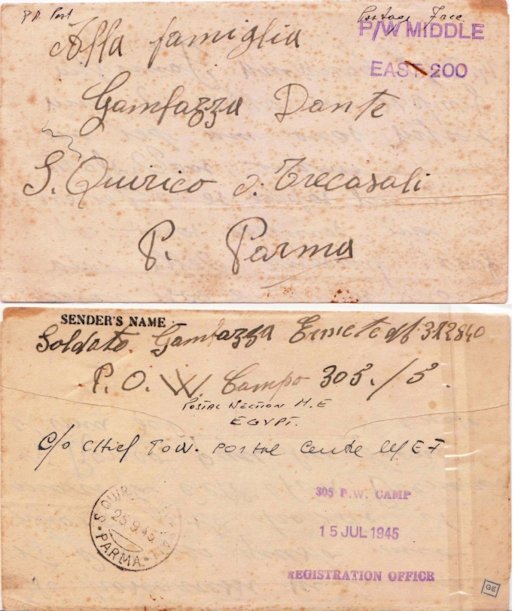 P.O. Post
Postage Free
P/W MIDDLE
EAST 200
Alla famiglia
Gambazza Dante
S. Quirico d. Trecasali
P. Parma
SENDER'S NAME
Soldato. Gambazza 312840
P.O.W Campo 305./5.
POSTAL SECTION M.E
EGYPT.
C/o Chief POW. POSTAL Centre MEF
305 P.W. CAMP
15 JUL 1945
REGISTRATION OFFICR
25.9.45
PARMA
GE